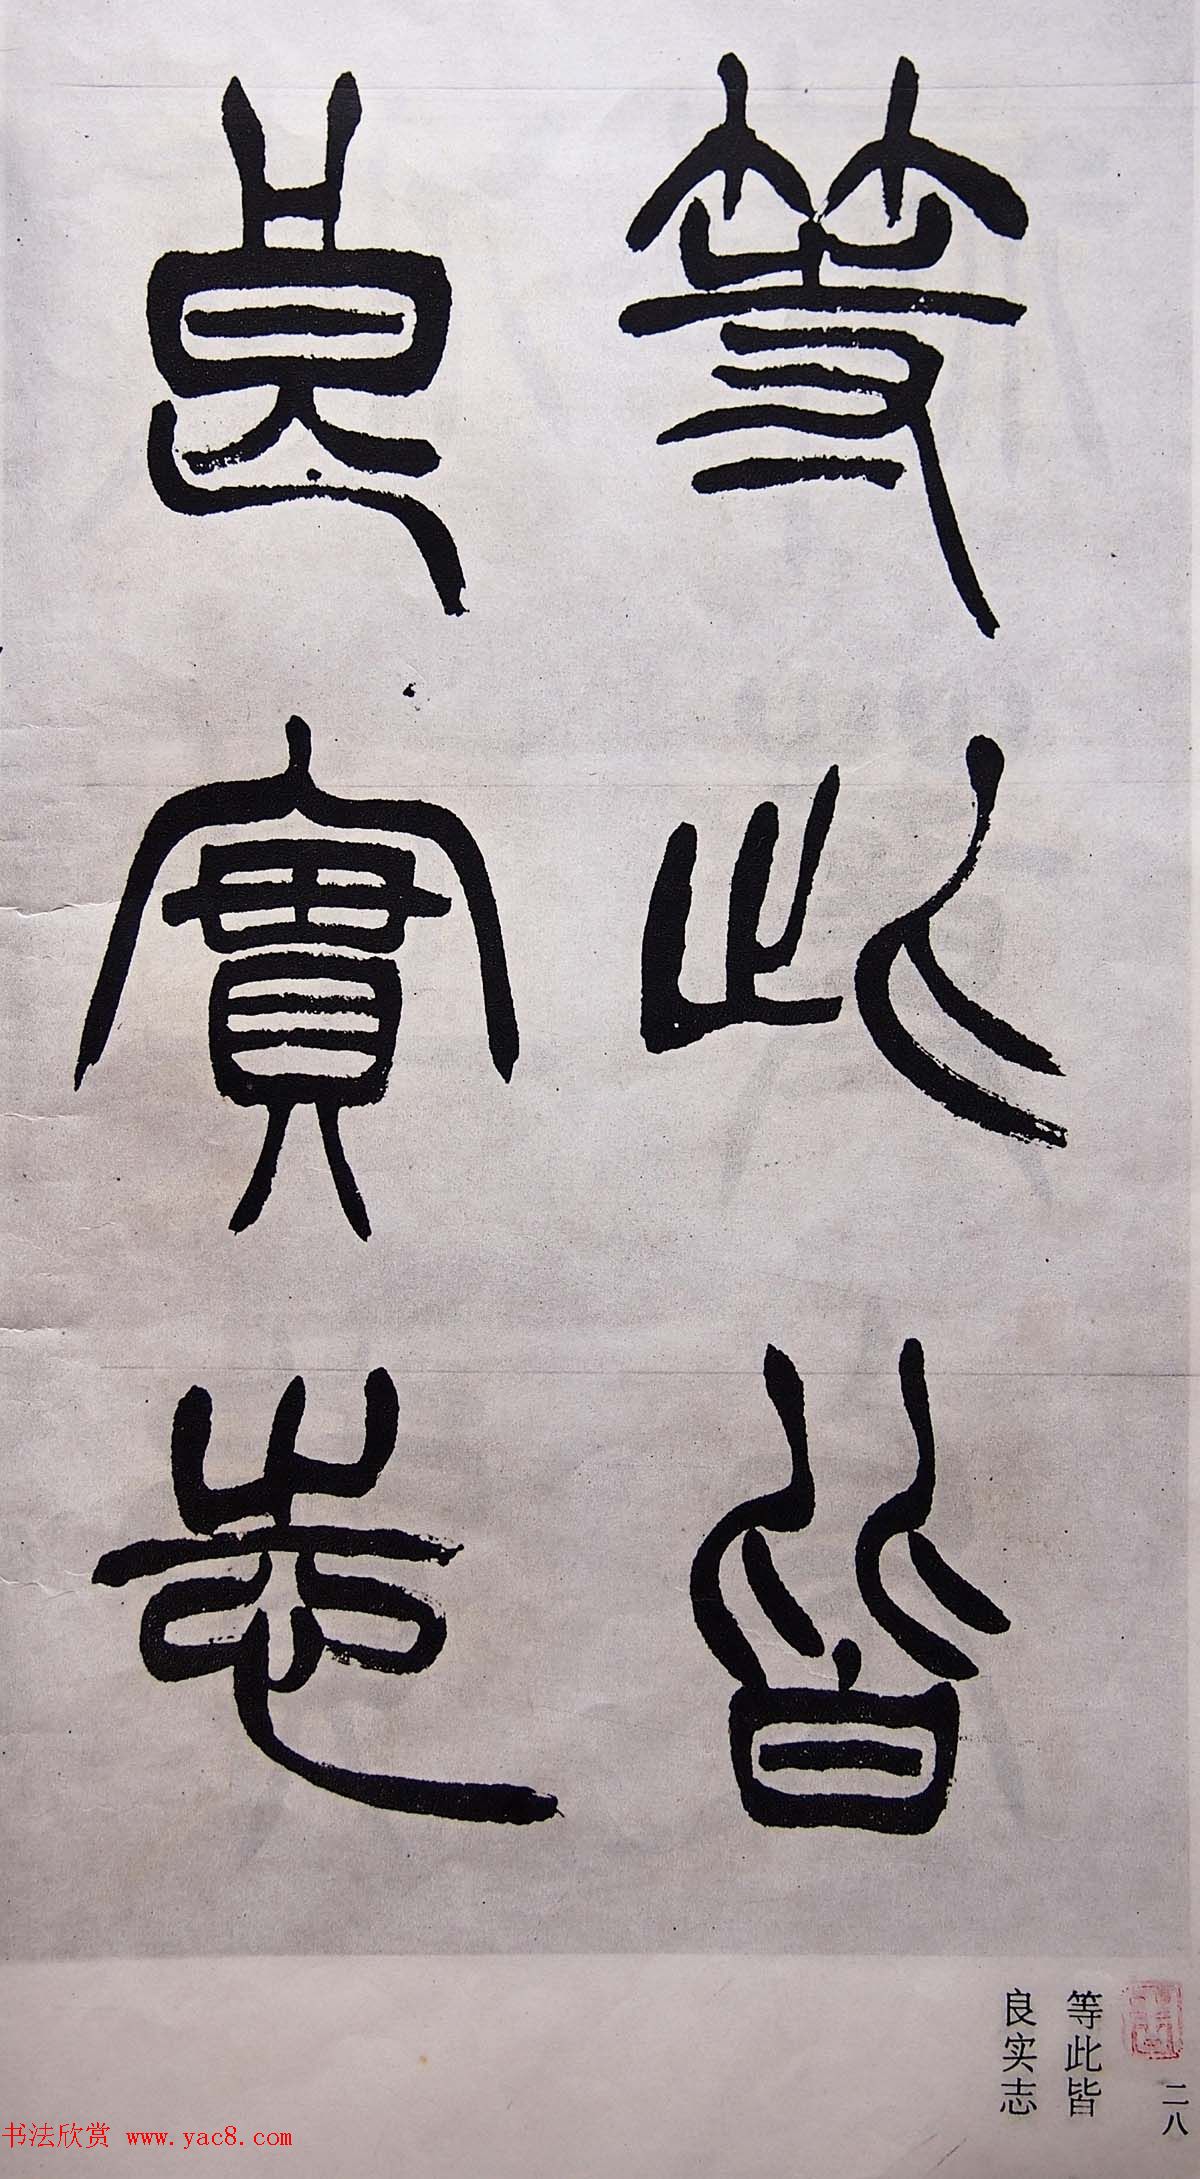 等此皆
良實志
等此皆
良实志
二八
书法欣赏 www.yac8.com